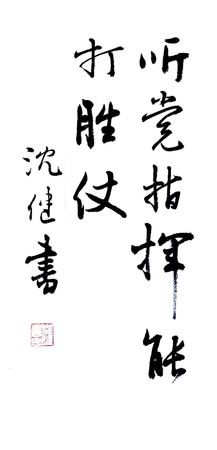 听党指挥能
打胜仗
沈健书